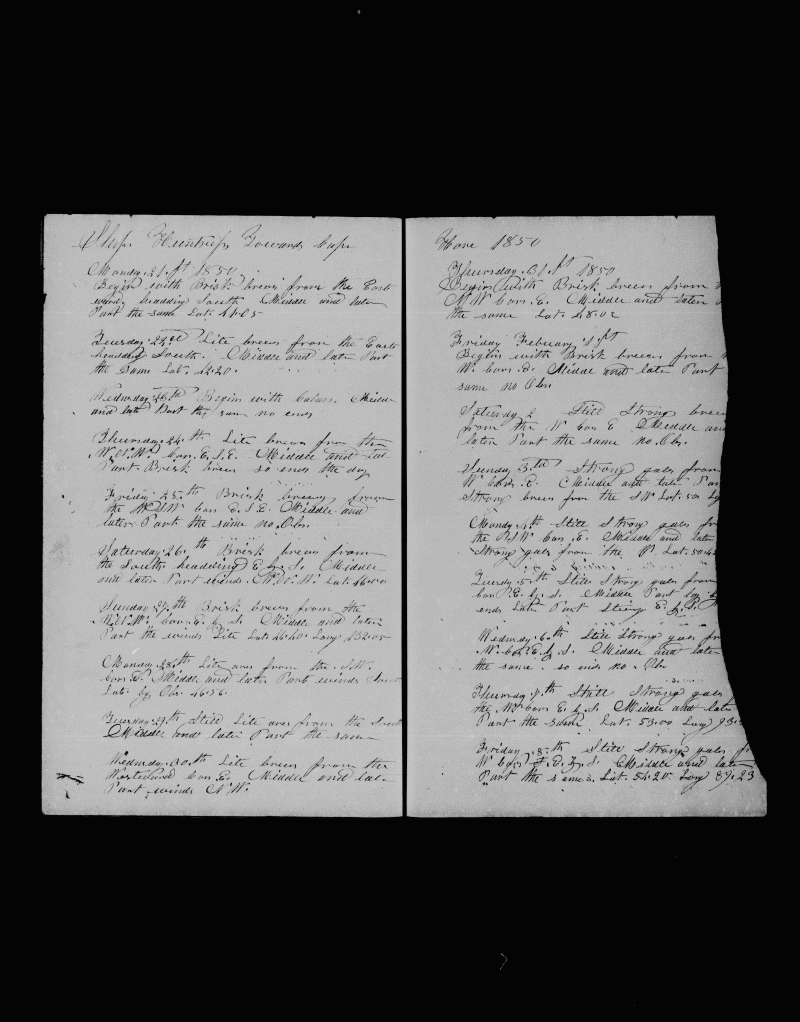 Ship Huntress Towards Cape
Monday 21 st 1850
Begin with Brisk breeis from the East
wardy heading South Middle and later
Part the same Lat. 44.05
Tuesday 22 nd Lite breeis from the East
heading South. Middle and late Part
the same Lat. 42.20.
Wednesday Begin with Calms. Middle
and late Part the same no ends
Thursday 24 th Lite breeis from the
W.N.W. Cors E.S.E. Middle and lat
Part Brisk breeis so ends the day
Friday 25 th Brisk breeis from
the WSW Cors E.S.E. Middle and
later Part the same no Obs.
Saturday 26 th Brisk breeis from
the South heading E. by S. Middle
and later Part winds W.N.W. Lat. 46.00
Sunday 27 th Brisk breeis from the
W.N.W. Cors E. by S. Middle and later
Part the winds Lite Lat. 46.40 Long 132.05
Monday 28 th Lite ares from the S.W.
Cors E. Middle and late Part winds
Lat. by Obs. 46.56
Tuesday 29 th Still Lite ares from the South
Middle and later Part the same
Wednesday 30 th Lite breeis from the
Westerward Cors E. Middle and late
Part winds N.W.
Horn 1850
Thursday 31 st 1850
Begin with Brisk breeis from
N.W. Cors. E. Middle and later
the same Lat. 48.02
Friday February 1 st
Begins with Brisk breeis from
W. Cors. E. Middle and late Part
same no Obs
Saturday 2 Still Strong breeis
from the W Cors E Middle and
later Part the same no. Obs.
Sunday 3 rd Strong gales from
W Cors. E. Middle and late Par
Strong breeis from the SW Lat. 50
Monday 4 th Still Strong gales fr
the Cors. E. Middle and late
Strong gales from the Lat. 50.42
Tuesday 5 th Still Strong gales from
Cors E. by S. Middle Part
ends Late Part Strong E. by S.
Wednesday 6 th Still Strong gales fr
W. Cors E. by S. Middle and late
the same. so ends no. Obs
Thursday 7 th Still Strong gales
the W. Cors E. by S. Middle and late
Part the same Lat. 53.00 Long 93.
Friday 8 th Still Strong gales fr
W Cors E. by S. Middle and late
Part the same. Lat. 54.20 Long 89.23